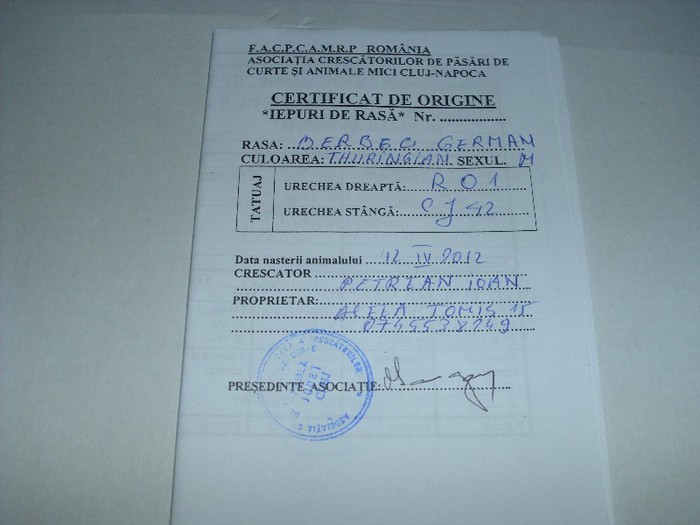 F.A.C.P.C.A.M.R.P ROMÂNIA
ASOCIAȚIA CRESCĂTORILOR DE PĂSĂRI DE
CURTE ȘI ANIMALE MICI CLUJ-NAPOCA
CERTIFICAT DE ORIGINE
*IEPURI DE RASĂ* Nr. ..................
RASA: BERBEC GERMAN
CULOAREA: THURINGIAN SEXUL. M
TATUAJ
URECHEA DREAPTĂ: RO1
URECHEA STÂNGĂ: CJ 42
Data nasterii animalului 12 IV 2012
CRESCATOR
PETRLAN IOAN
PROPRIETAR:
ALEEA TOMIS 15
0745538249
PREȘEDINTE ASOCIAȚIE:
JUDEȚ
CLUJ